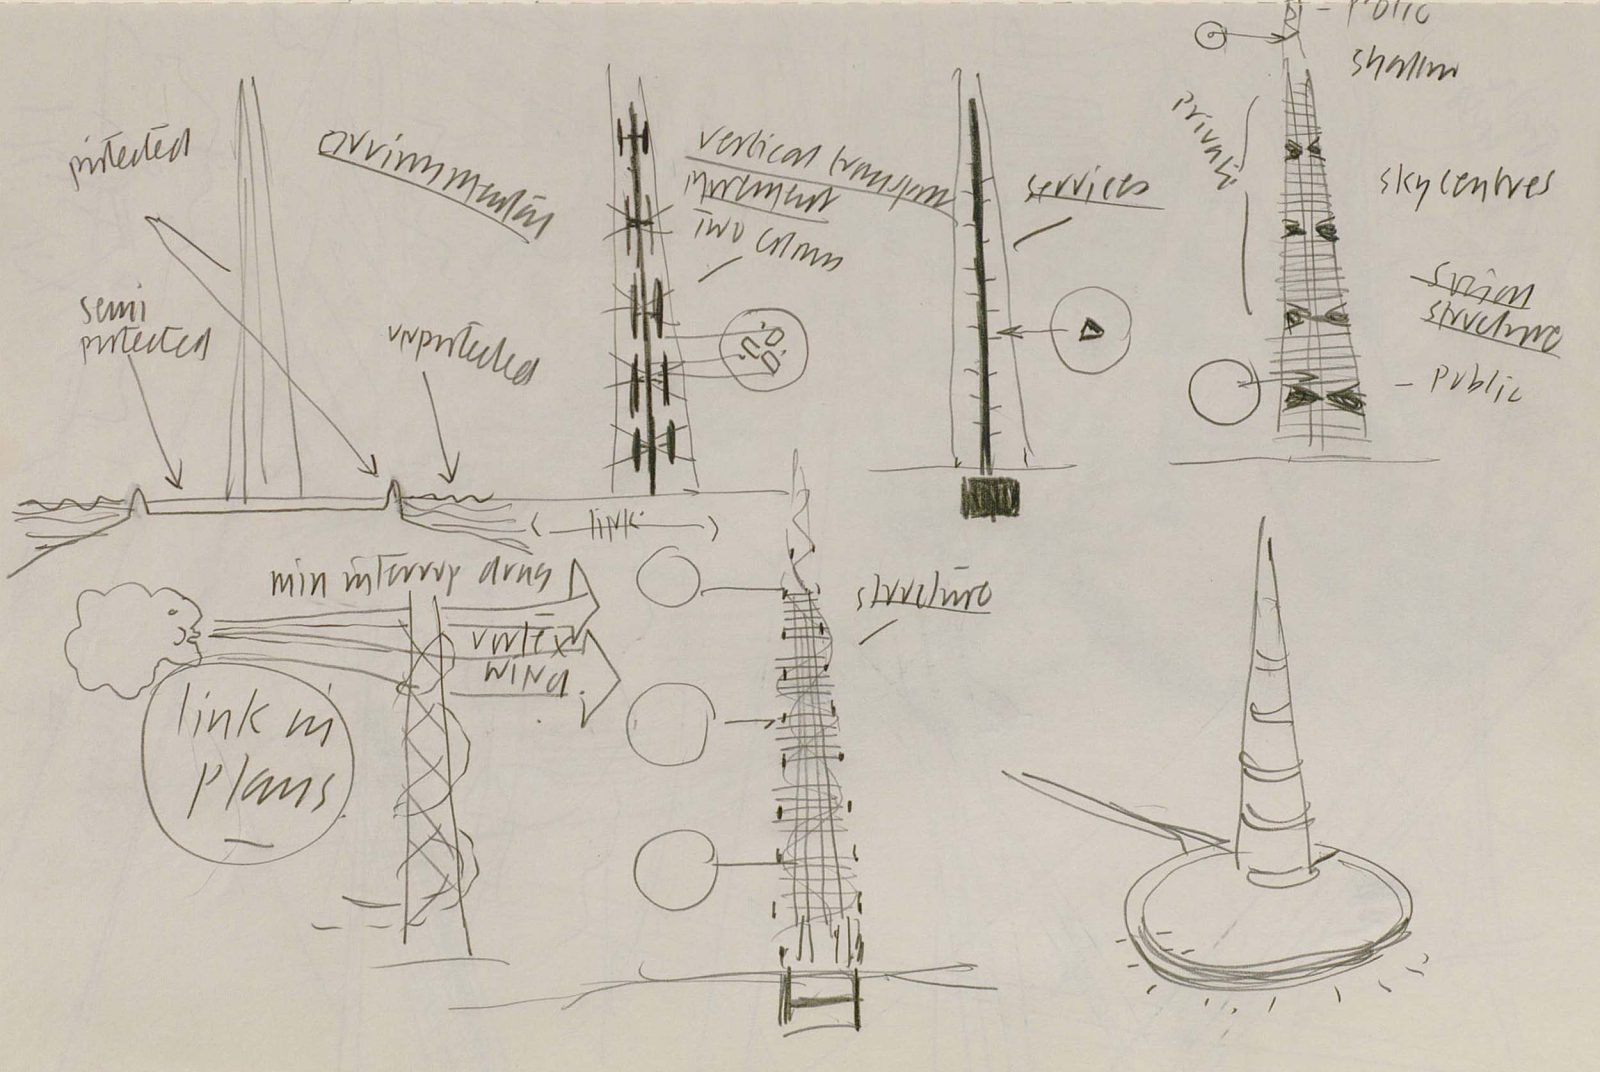 protected
semi
protected
unprotected
vertical transport
movement
services
private
public
sky centres
structure
public
link
min interrup drag
vortex
wind
structure
link in
plans